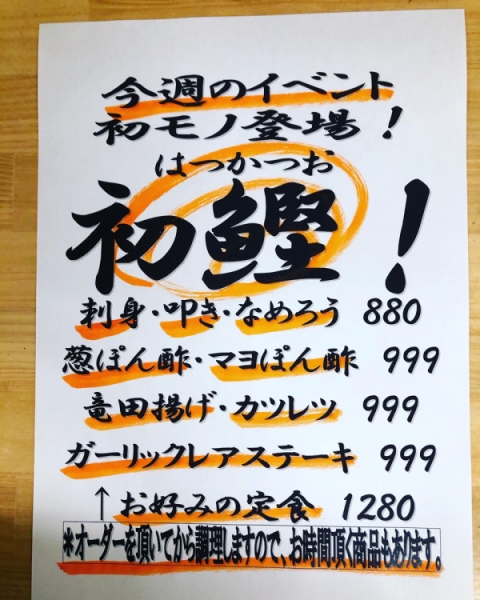 今週のイベント
初モノ登場！
はつかつお
初鰹！
刺身・叩き・なめろう 880
葱ぽん酢・マヨぽん酢 999
竜田揚げ・カツレツ 999
ガーリックレアステーキ 999
↑お好みの定食 1280
*オーダーを頂いてから調理しますので、お時間頂く商品もあります。